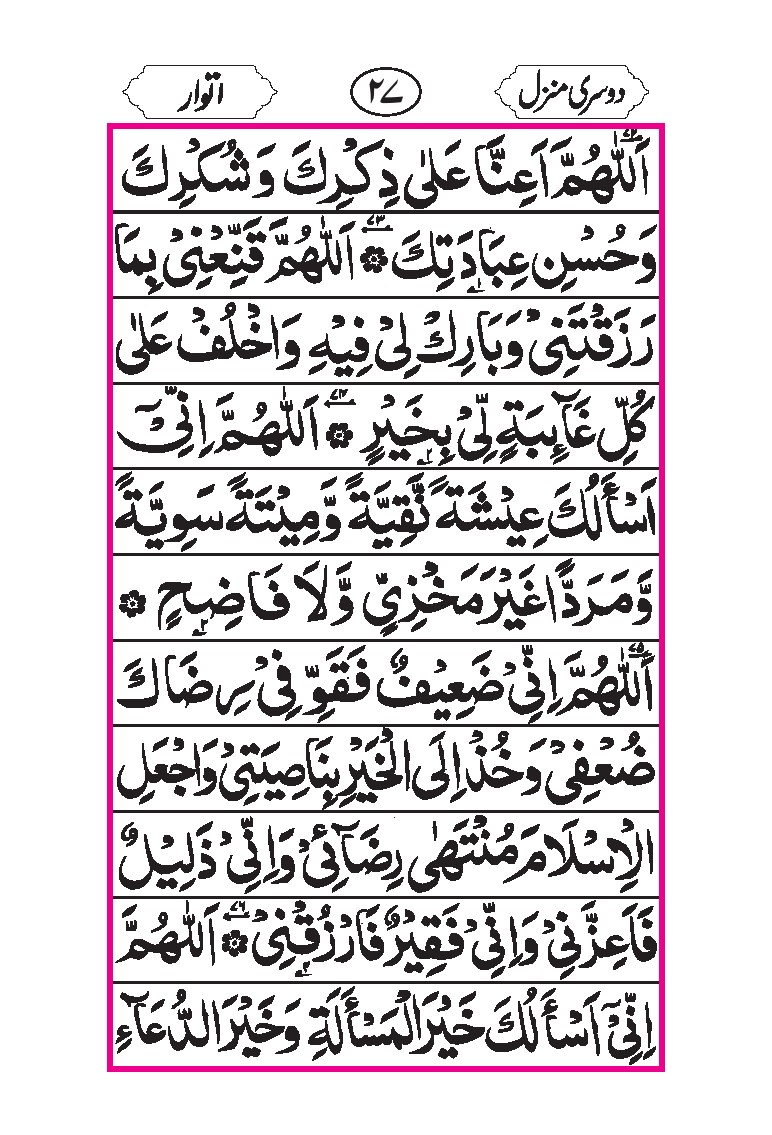 دوسری منزل ۲۷ اتوار
اَللّٰهُمَّ اَعِنَّا عَلٰى ذِكْرِكَ وَشُكْرِكَ
وَحُسْنِ عِبَادَتِكَ ۞ اَللّٰهُمَّ قَنِّعْنِيْ بِمَا
رَزَقْتَنِيْ وَبَارِكْ لِيْ فِيْهِ وَاخْلُفْ عَلٰى
كُلِّ غَآئِبَةٍ لِّيْ بِخَيْرٍ ۞ اَللّٰهُمَّ اِنِّيْٓ
اَسْأَلُكَ عِيْشَةً نَّقِيَّةً وَّمِيْتَةً سَوِيَّةً
وَّمَرَدًّا غَيْرَ مَخْزِيٍّ وَّلَا فَاضِحٍ ۞
اَللّٰهُمَّ اِنِّيْ ضَعِيْفٌ فَقَوِّ فِيْ رِضَاكَ
ضُعْفِيْ وَخُذْ اِلَى الْخَيْرِ بِنَاصِيَتِيْ وَاجْعَلِ
الْاِسْلَامَ مُنْتَهٰى رِضَآئِيْ وَاِنِّيْ ذَلِيْلٌ
فَاَعِزَّنِيْ وَاِنِّيْ فَقِيْرٌ فَارْزُقْنِيْ ۞ اَللّٰهُمَّ
اِنِّيْٓ اَسْأَلُكَ خَيْرَ الْمَسْأَلَةِ وَخَيْرَ الدُّعَآءِ